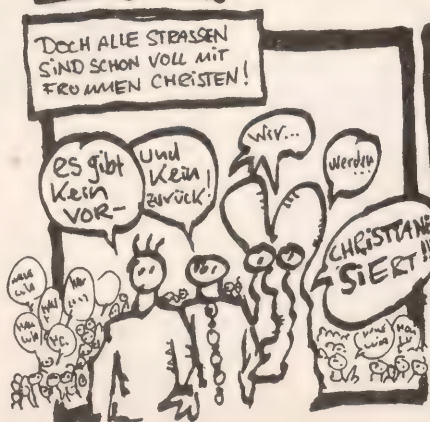 DOCH ALLE STRASSEN
SIND SCHON VOLL MIT
FROMMEN CHRISTEN!
es gibt
kein
VOR-
und
kein
zurück!
Wir...
werden
CHRISTIANI
SIERT!!!